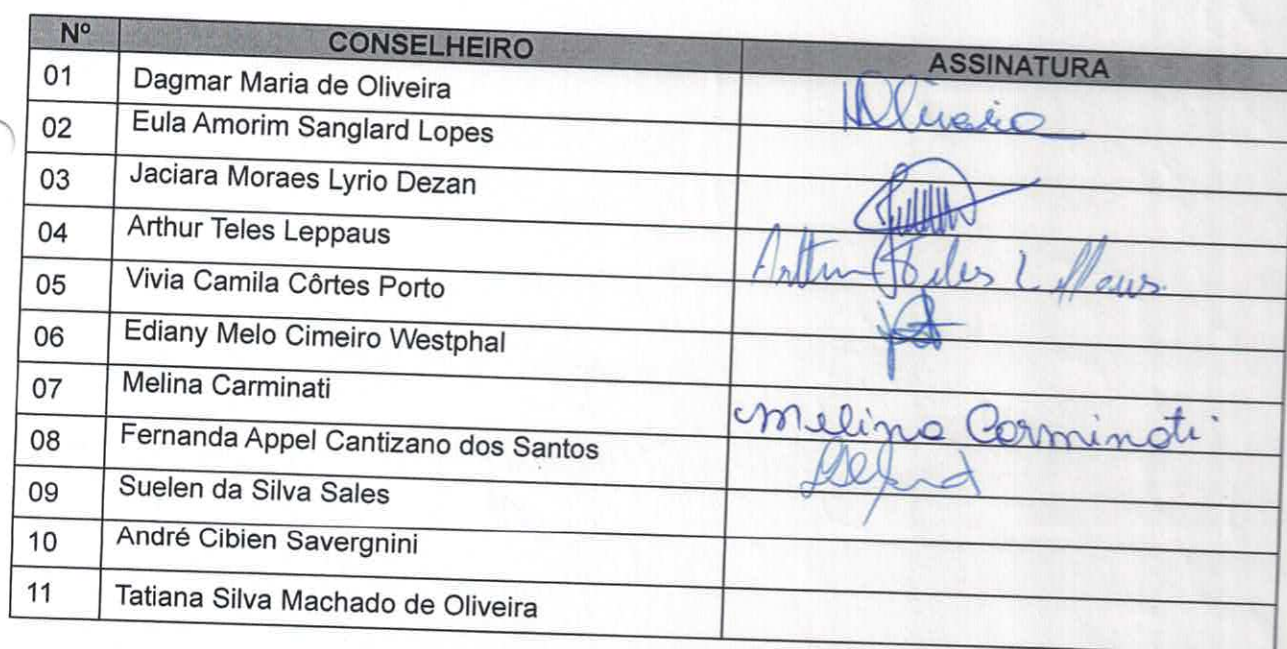 Nº CONSELHEIRO ASSINATURA
01 Dagmar Maria de Oliveira Oliveira
02 Eula Amorim Sanglard Lopes
03 Jaciara Moraes Lyrio Dezan
04 Arthur Teles Leppaus Arthur Teles Leppaus
05 Vivia Camila Côrtes Porto
06 Ediany Melo Cimeiro Westphal
07 Melina Carminati Melina Carminati
08 Fernanda Appel Cantizano dos Santos
09 Suelen da Silva Sales
10 André Cibien Savergnini
11 Tatiana Silva Machado de Oliveira